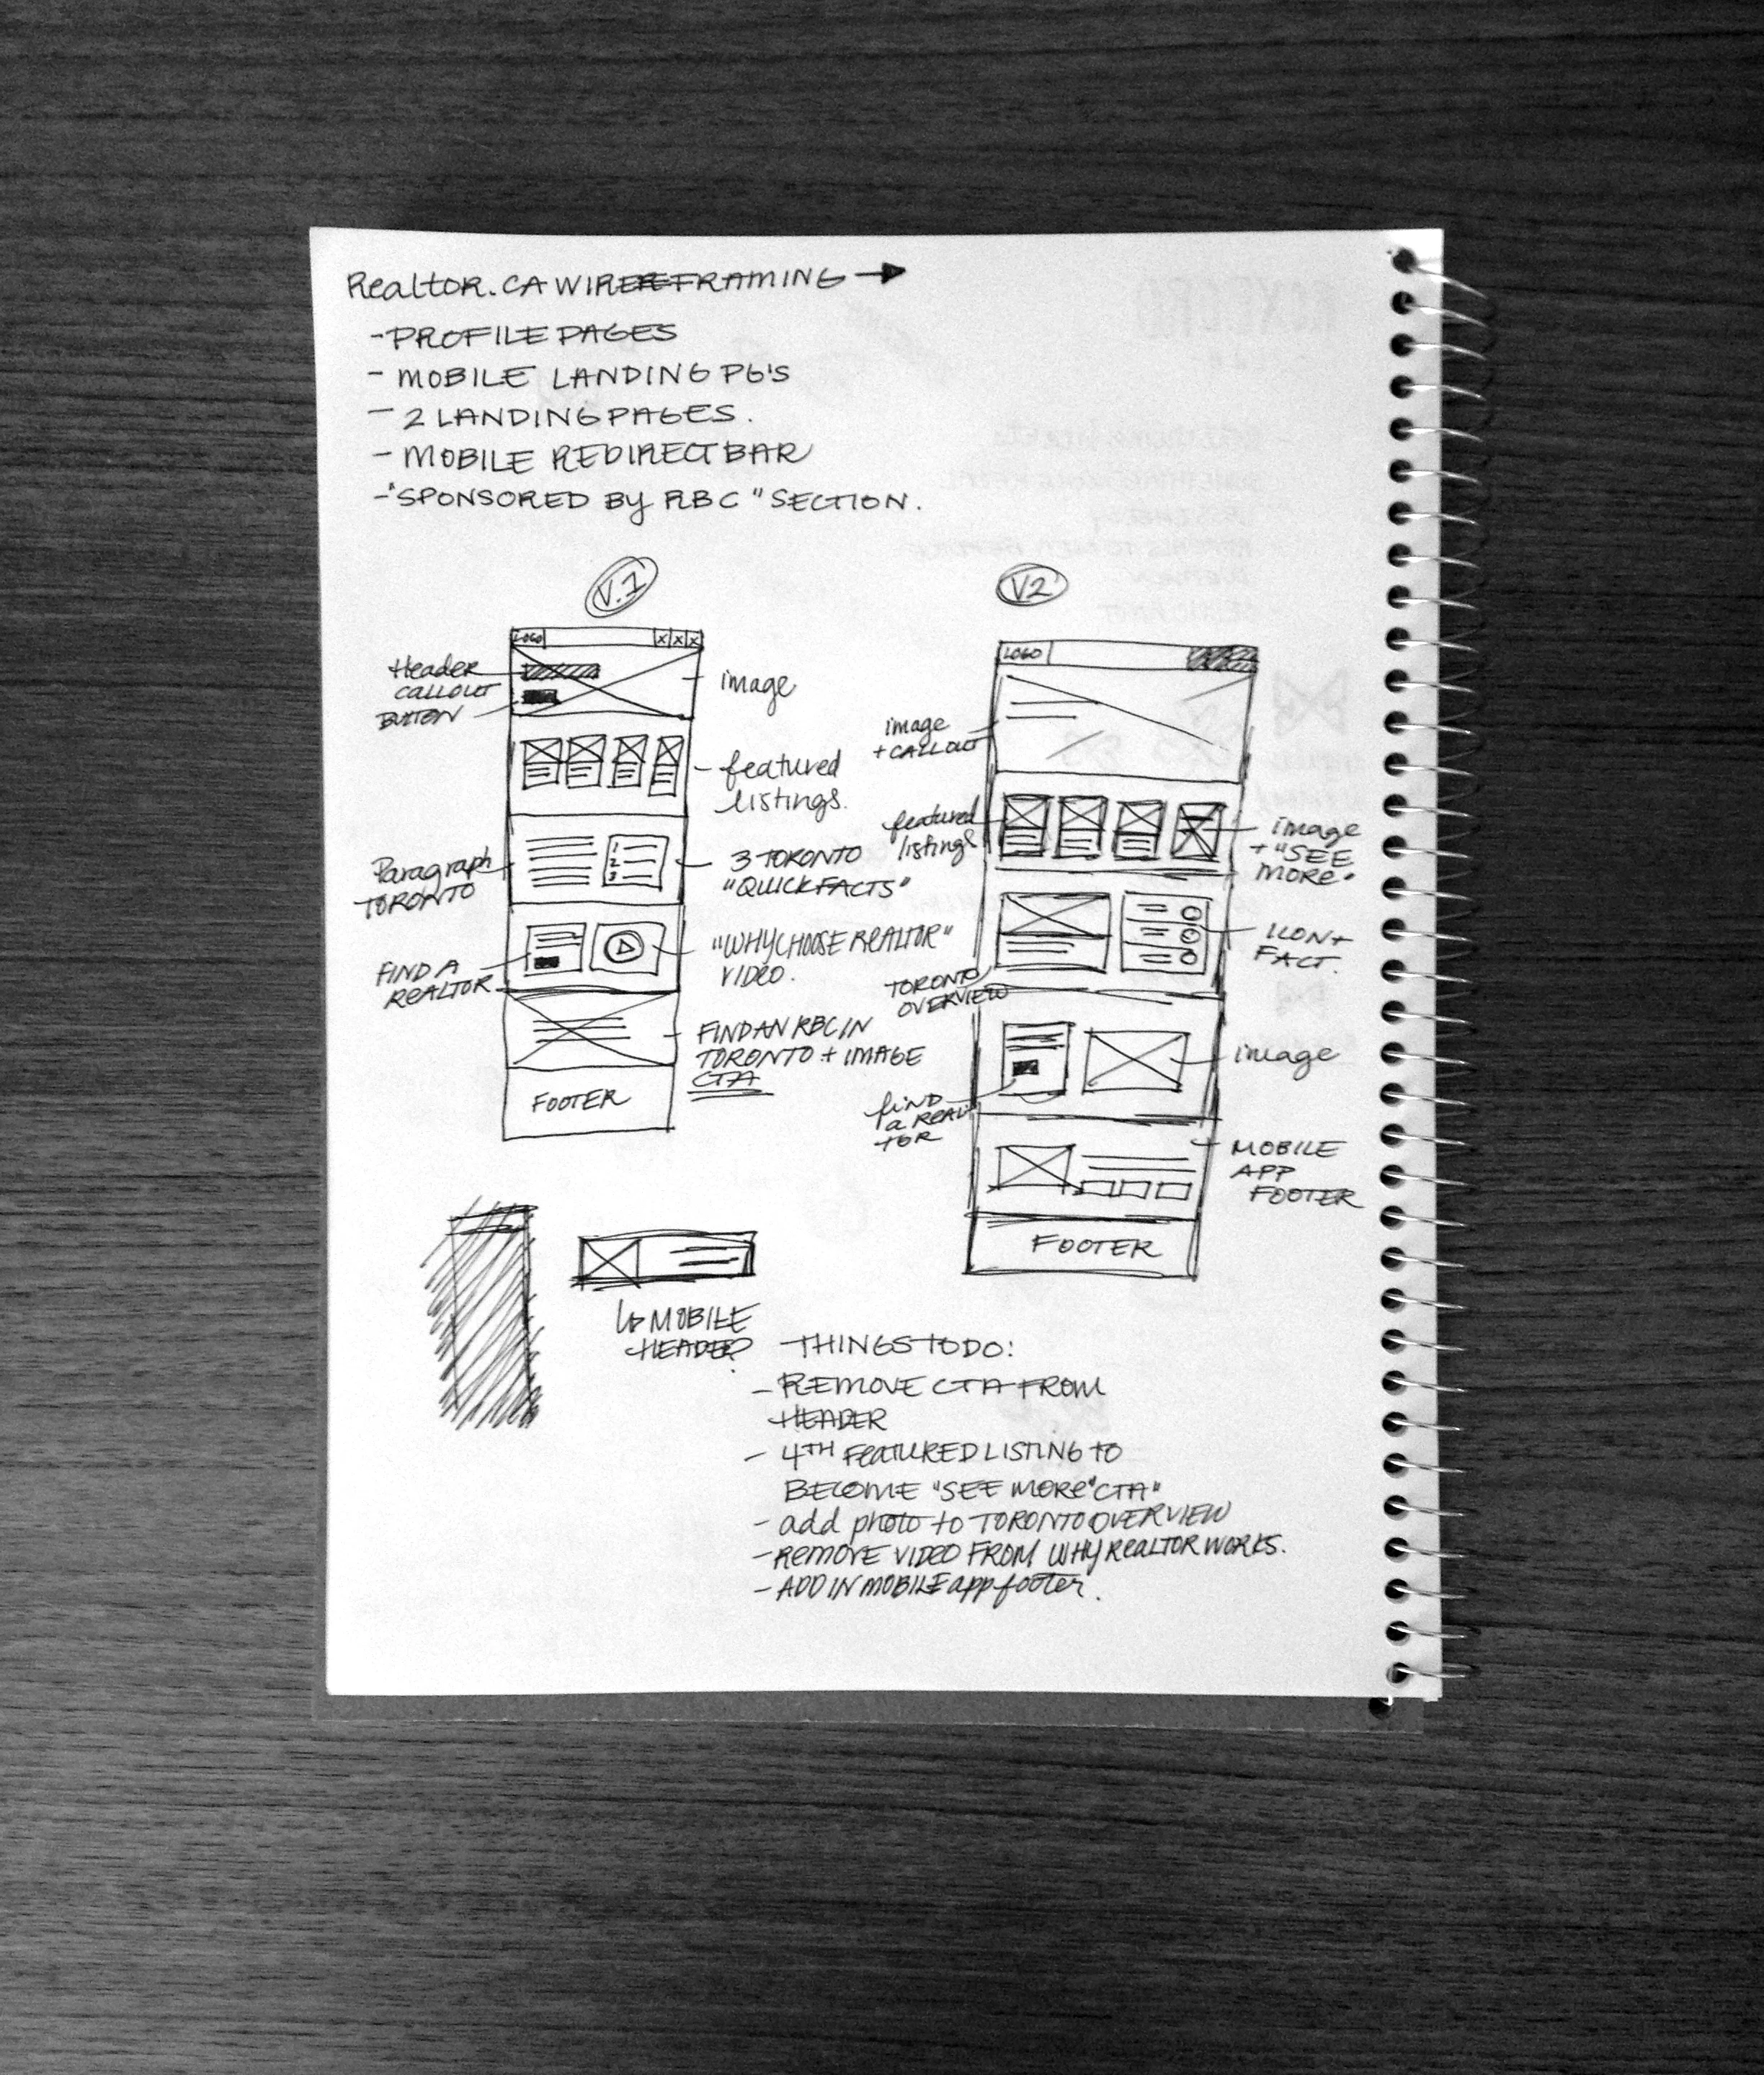 Realtor.CA WIREFRAMING →
- PROFILE PAGES
- MOBILE LANDING PG'S
- 2 LANDING PAGES.
- MOBILE REDIRECT BAR
- "SPONSORED BY RBC" SECTION.
V.1
LOGO
X X X
Header
CALLOUT
BUTTON
image
featured
listings.
Paragraph
TORONTO
1
2
3
3 TORONTO
"QUICK FACTS"
FIND A
REALTOR
"WHY CHOOSE REALTOR"
VIDEO.
FIND AN RBC IN
TORONTO + IMAGE
CTA
FOOTER
V2
LOGO
image
+ CALLOUT
featured
listings
image
+ "SEE
MORE"
TORONTO
OVERVIEW
ICON +
FACT.
find
a REAL
TOR
image
MOBILE
APP
FOOTER
FOOTER
↳ MOBILE
HEADER?
THINGS TO DO:
- REMOVE CTA FROM
HEADER
- 4TH FEATURED LISTING to
BECOME "SEE MORE" CTA"
- add photo to TORONTO OVERVIEW
- REMOVE VIDEO FROM WHY REALTOR WORKS.
- ADD IN MOBILE app footer.